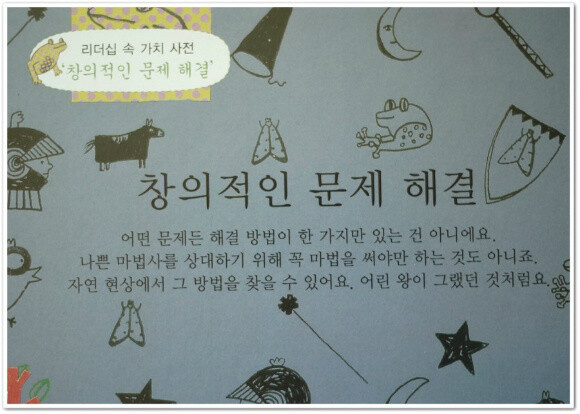 리더십 속 가치 사전
'창의적인 문제 해결'
창의적인 문제 해결
어떤 문제든 해결 방법이 한 가지만 있는 건 아니에요.
나쁜 마법사를 상대하기 위해 꼭 마법을 써야만 하는 것도 아니죠.
자연 현상에서 그 방법을 찾을 수 있어요. 어린 왕이 그랬던 것처럼요.